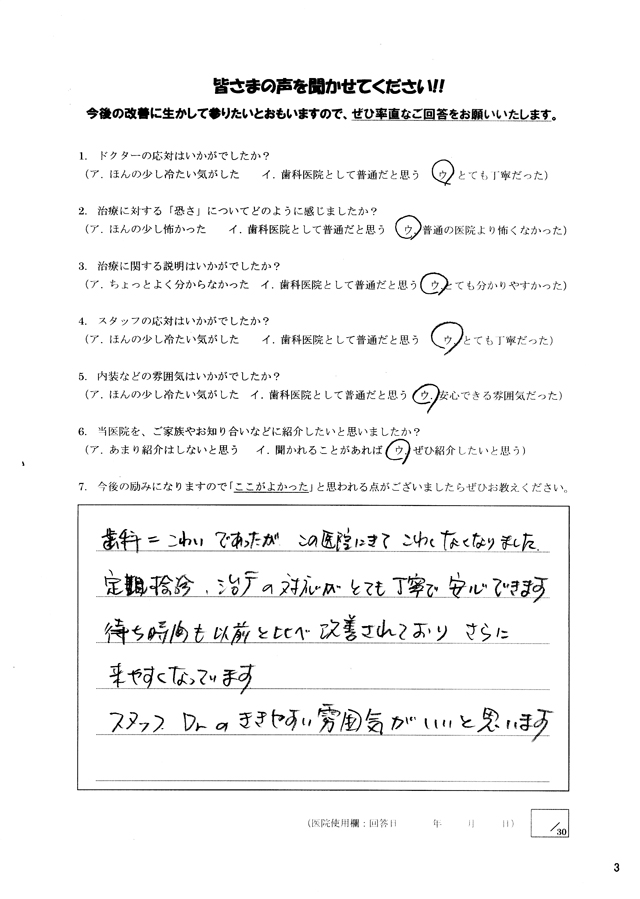 皆さまの声を聞かせてください!!
今後の改善に生かして参りたいとおもいますので、ぜひ率直なご回答をお願いいたします。
1. ドクターの応対はいかがでしたか？
（ア．ほんの少し冷たい気がした　イ．歯科医院として普通だと思う　ウ．とても丁寧だった）
2. 治療に対する「恐さ」についてどのように感じましたか？
（ア．ほんの少し怖かった　イ．歯科医院として普通だと思う　ウ．普通の医院より怖くなかった）
3. 治療に関する説明はいかがでしたか？
（ア．ちょっとよく分からなかった　イ．歯科医院として普通だと思う　ウ．とても分かりやすかった）
4. スタッフの応対はいかがでしたか？
（ア．ほんの少し冷たい気がした　イ．歯科医院として普通だと思う　ウ．とても丁寧だった）
5. 内装などの雰囲気はいかがでしたか？
（ア．ほんの少し冷たい気がした　イ．歯科医院として普通だと思う　ウ．安心できる雰囲気だった）
6. 当医院を、ご家族やお知り合いなどに紹介したいと思いましたか？
（ア．あまり紹介はしないと思う　イ．聞かれることがあれば　ウ．ぜひ紹介したいと思う）
7. 今後の励みになりますので「ここがよかった」と思われる点がございましたらぜひお教えください。
歯科＝こわい であったが この医院にきて こわくなくなりました
定期検診、治療の対応が とても丁寧で 安心できます
待ち時間も以前と比べ改善されており さらに
来やすくなっています
スタッフ Drの ききやすい雰囲気がいいと思います
（医院使用欄：回答日　年　月　日）　／30
3